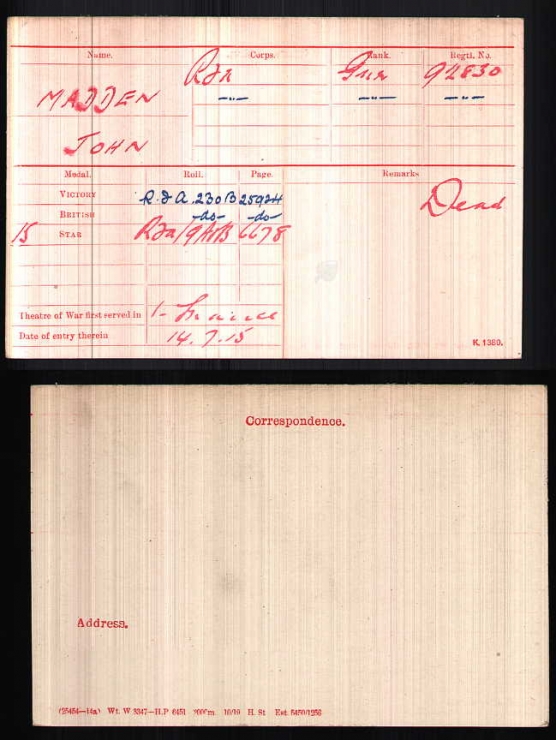 Name. Corps. Rank. Regtl. No.
MADDEN RFA Gnr 92830
—"— —"— —"—
JOHN
Medal. Roll. Page. Remarks
VICTORY R.F.A. 230B 25924 Dead
BRITISH -do- -do-
15 STAR RFA/9A 6678
Theatre of War first served in 1- France
Date of entry therein 14.7.15
K. 1380.
Correspondence.
Address.
Wt. W 3347—H.P 6451 10/19 H. St